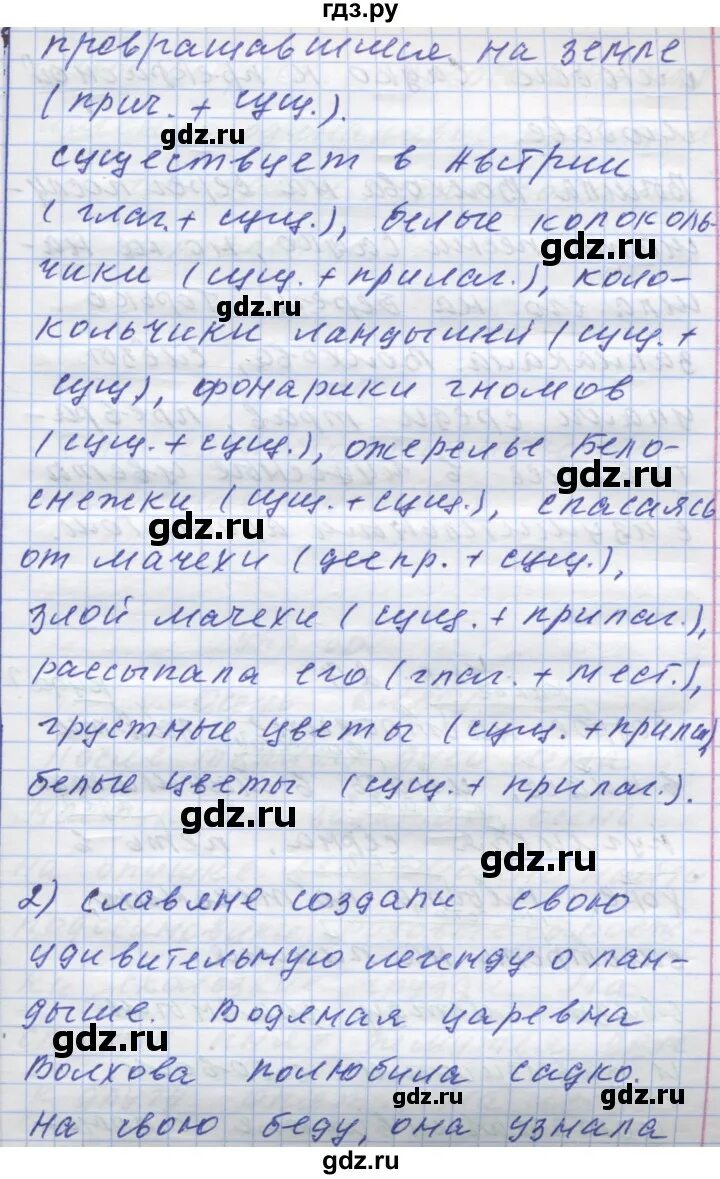 гдз.ру
превращавшиеся на земле
(прич. + сущ.).
существует в Австрии
(глаг. + сущ.), белые колоколь-
чики (сущ. + прилаг.), коло-
кольчики ландышей (сущ. +
сущ), фонарики гномов
(сущ. + сущ.), ожерелье Бело-
снежки (сущ. + сущ.), спасаясь
от мачехи (деепр. + сущ.),
злой мачехи (сущ. + прилаг.),
рассыпала его (глаг. + мест.),
грустные цветы (сущ. + прилаг)
белые цветы (сущ. + прилаг.).
2) Славяне создали свою
удивительную легенду о лан-
дыше. Водяная царевна
Волхова полюбила Садко.
На свою беду, она узнала
gdz.ru
gdz.ru
gdz.ru
gdz.ru
gdz.ru
gdz.ru
gdz.ru
gdz.ru
gdz.ru
gdz.ru
gdz.ru
gdz.ru